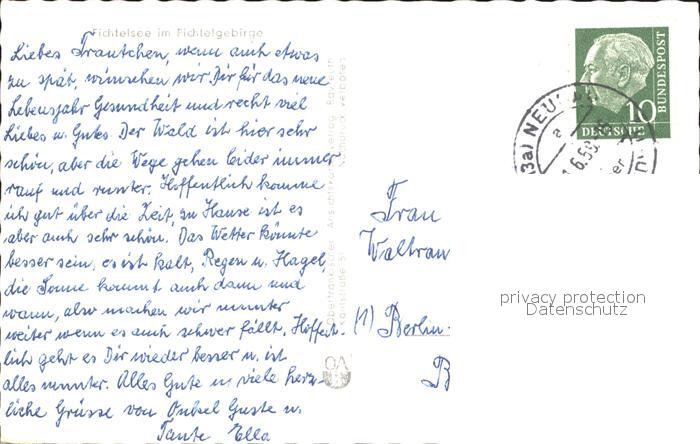 Fichtelsee im Fichtelgebirge
Liebes Trautchen, wenn auch etwas
zu spät, wünschen wir Dir für das neue
Lebensjahr Gesundheit und recht viel
Liebes u. Gutes. Der Wald ist hier sehr
schön, aber die Wege gehen leider immer
rauf und runter. Hoffentlich komme
ich gut über die Zeit, zu Hause ist es
aber auch sehr schön. Das Wetter könnte
besser sein, es ist kalt, Regen u. Hagel,
die Sonne kommt auch dann und
wann, also machen wir munter
weiter wenn es auch schwer fällt. Hoffent-
lich geht es Dir wieder besser u. ist
alles munter. Alles Gute u. viele herz-
liche Grüsse von Onkel Guste u.
Tante Ella
Frau
Waltrau
(1) Berlin-
B
10
DEUTSCHE
BUNDESPOST
(13a) NEU
a
privacy protection
Datenschutz